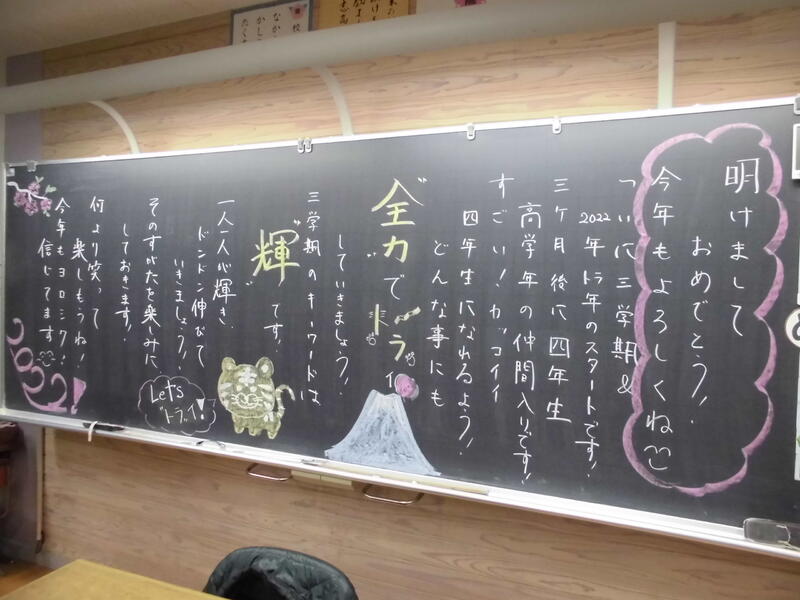 明けまして
おめでとう！
今年もよろしくね
ついに三学期&
2022年トラ年のスタートです！
三ケ月後に四年生
高学年の仲間入りです！
すごい！カッコイイ
四年生になれるよう！
どんな事にも
"全力でトライ"
していきましょう！
三学期のキーワードは
"輝"です。
一人一人が輝き、
ドンドン伸びて
いきましょう！
そのすがたを楽しみに、
しておきます！
何より笑って
楽しもうね！
今年もヨロシク！
信じてます
Let's
トライ！